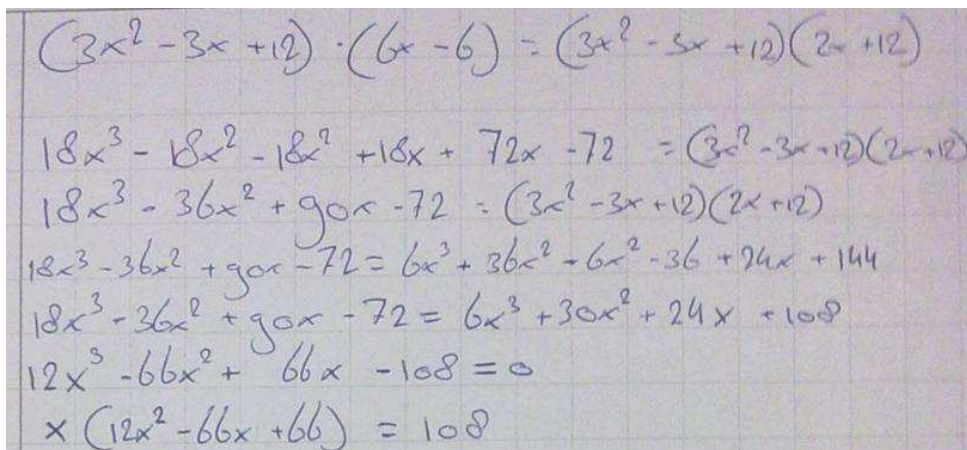 (3x² - 3x + 12) · (6x - 6) = (3x² - 3x + 12)(2x + 12)
18x³ - 18x² - 18x² + 18x + 72x - 72 = (3x² - 3x + 12)(2x + 12)
18x³ - 36x² + 90x - 72 = (3x² - 3x + 12)(2x + 12)
18x³ - 36x² + 90x - 72 = 6x³ + 36x² - 6x² - 36 + 24x + 144
18x³ - 36x² + 90x - 72 = 6x³ + 30x² + 24x + 108
12x³ - 66x² + 66x - 108 = 0
x (12x² - 66x + 66) = 108